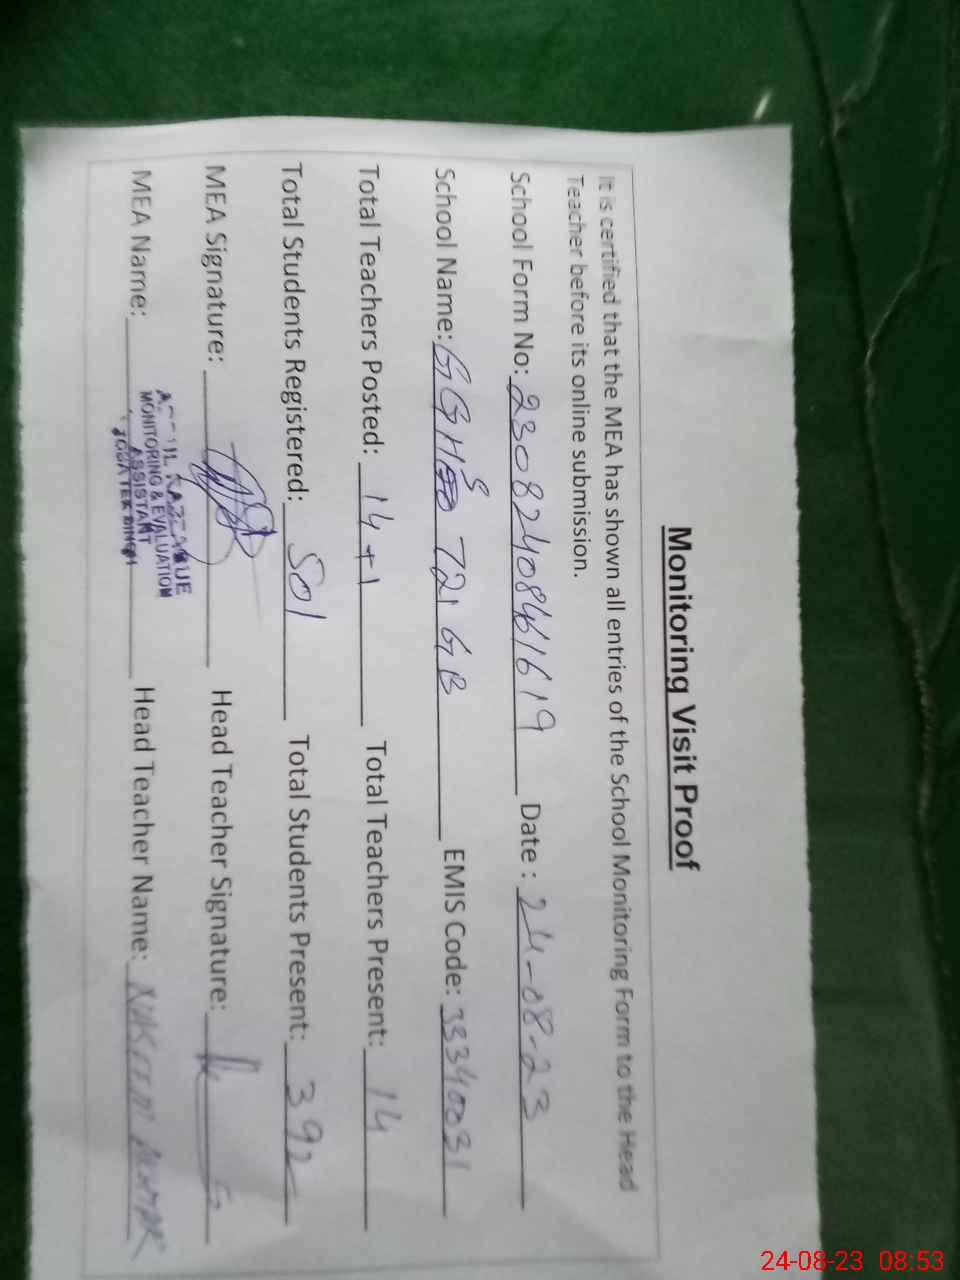 Monitoring Visit Proof
It is certified that the MEA has shown all entries of the School Monitoring Form to the Head
Teacher before its online submission.
School Form No: 230824084616 19 Date : 24-08-23
School Name: GGHS 721 GB EMIS Code: 33340031
Total Teachers Posted: 14+1 Total Teachers Present: 14
Total Students Registered: 501 Total Students Present: 392
MEA Signature: Head Teacher Signature:
MEA Name: Head Teacher Name: AKHTAR
MONITORING & EVALUATION
ASSISTANT
TOBA TEK SINGH
24-08-23 08:53